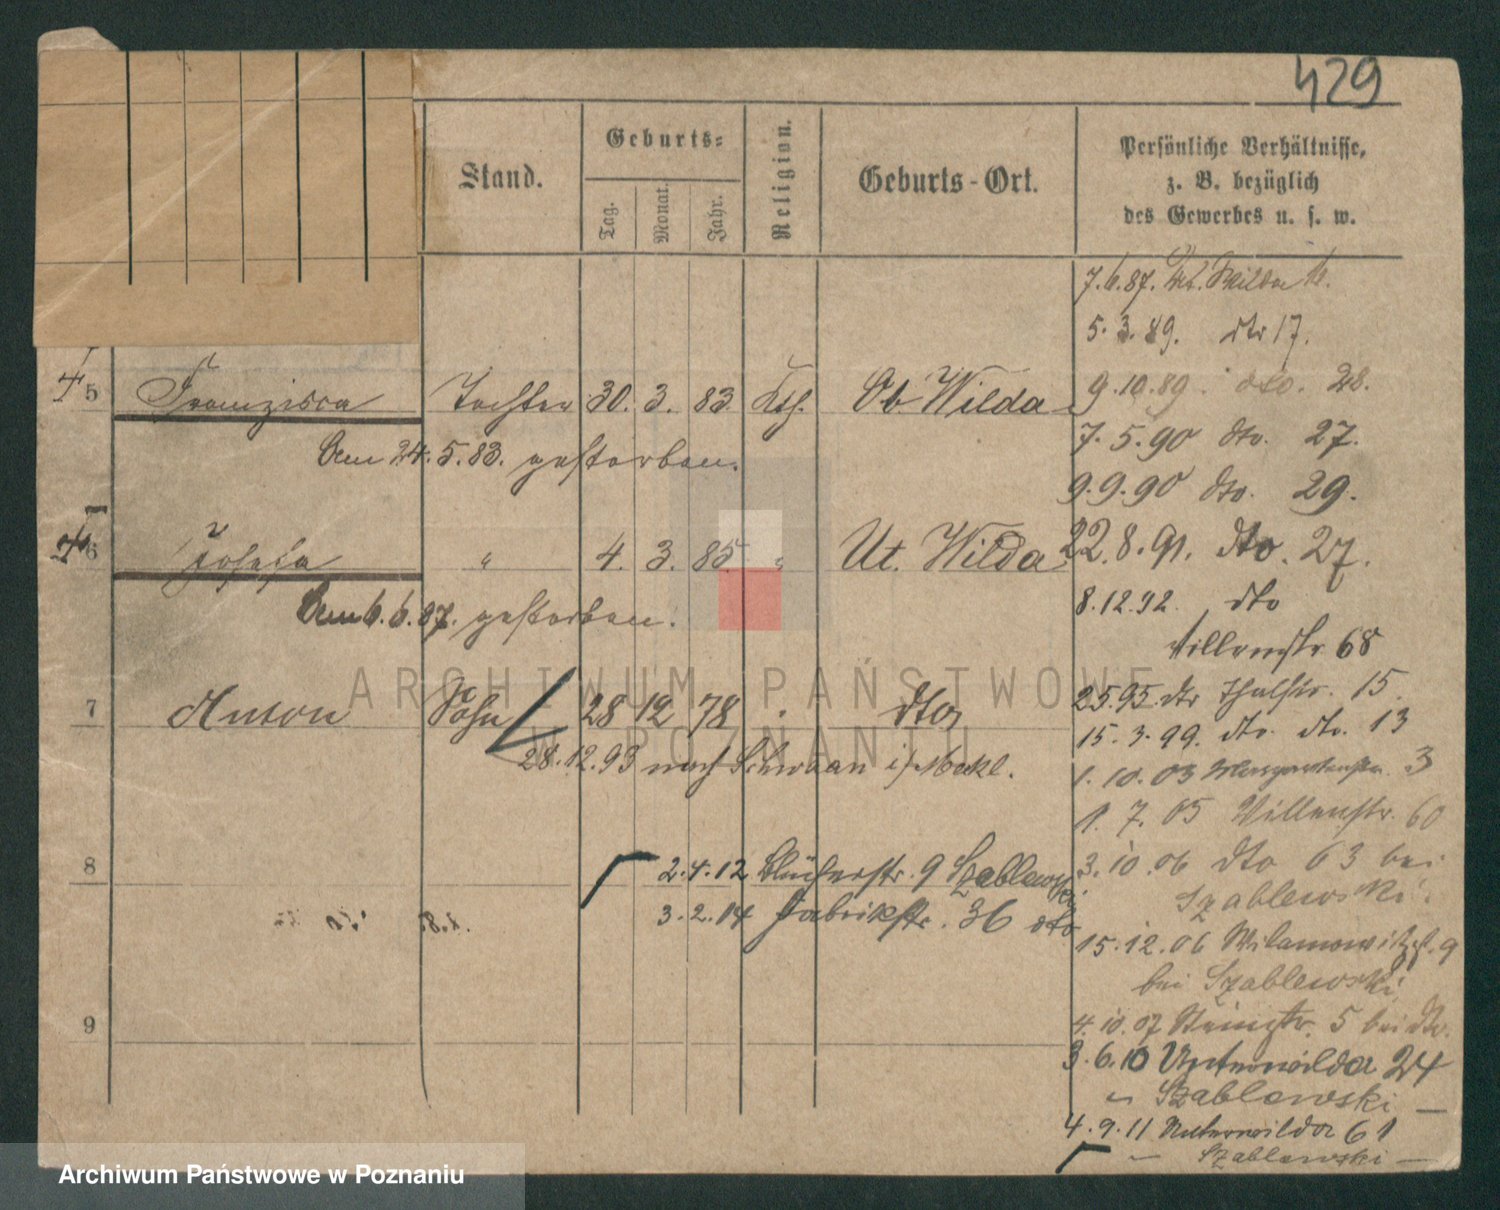 429
Stand.
Geburts-
Tag.
Monat.
Jahr.
Religion.
Geburts-Ort.
Persönliche Verhältnisse,
z. B. bezüglich
des Gewerbes u. s. w.
5 Franzisca Tochter 30. 3. 83. Kth. Ob Wilda
Am 24. 5. 83. gestorben.
6 Josefa " 4. 3. 85. " Ut. Wilda
Am 6. 6. 87. gestorben.
7 Anton Sohn 28 12 78 dto
28.12.93 nach Schwaan i/Meckl.
8
2.4.12 Blücherstr. 9 Szablewski
3.2.14 Fabrikstr. 36 dto
9
7.6.87. Ut. Wilda
5.3.89. dto 17.
9.10.89. dto. 28.
7.5.90 dto. 27.
9.9.90 dto. 29.
22.8.91. dto. 27.
8.12.92. dto
Villenstr. 68
2.5.95. dto Thalstr. 15.
15.3.99. dto. dto. 13
1.10.03 Margarethenstr. 3
1.7.05 Villenstr. 60
3.10.06 dto 63 bei
Szablewski.
15.12.06 Wilamowitzst. 9
bei Szablewski
4.10.07 5 bei dto.
3.6.10 Unterwilda 24
" Szablewski
4.9.11 Unterwilda 61
" Szablewski
ARCHIWUM PAŃSTWOWE
W POZNANIU
Archiwum Państwowe w Poznaniu